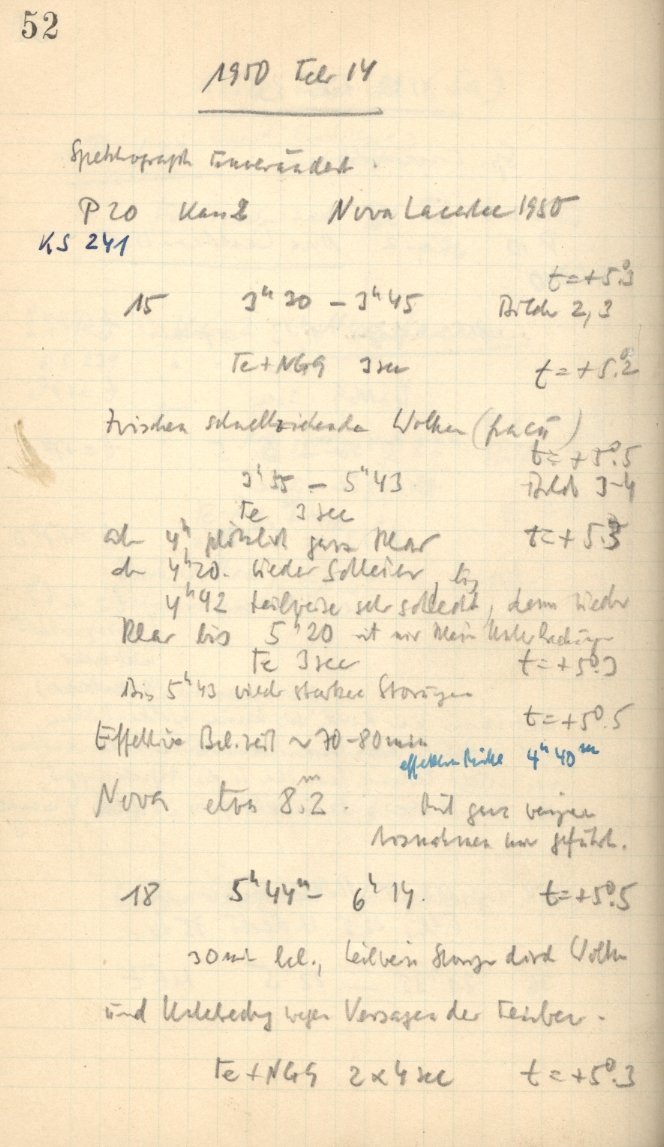 52
1950 Febr 14
Spektrograph unverändert.
P 20 Kass 2 Nova Lacertae 1950
KS 241
t = +5°.3
15 3h 20 – 3h 45 Bilder 2, 3
Te + NGG 3 sec t = +5°.2
Zwischen schnellziehenden Wolken
t = +5°.5
3h 55 – 5h 43. Bilder 3–4
Te 3 sec
ab 4h plötzlich ganz klar t = +5.3
ab 4h 20. wieder Schleier, bis
4h 42 teilweise sehr schlecht, dann wieder
klar bis 5h 20 mit nur kleinen Unterbrechungen
Te 3 sec t = +5°.3
Bis 5h 43 wieder starke Störungen
t = +5°.5
Effektive Bel.zeit ~ 70–80 min
effektive Mitte 4h 40m
Nova etwa 8m.2. Mit ganz wenigen
Ausnahmen nur geführt.
18 5h 44m – 6h 14. t = +5°.5
30 min bel., teilweise Störungen durch Wolken
und Unterbrechung wegen Versagen der
Te + NGG 2 x 4 sec t = +5°.3